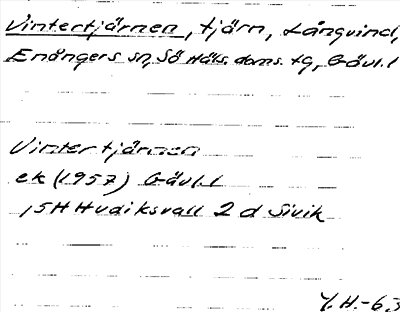 Vintertjärnen, tjärn, Långvind,
Enångers sn, Sö Häls. doms. tg, Gävl. l
Vintertjärnen
ek (1957) Gävl. l
15H Hudiksvall 2 d Sivik
Y. H. -63